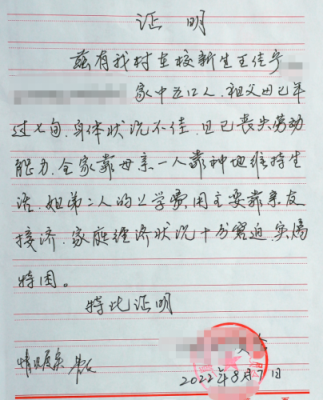 证明
兹有我村在校新生王佳宁
家中五口人,祖父田已年
过七旬,身体状况不佳,且已丧失劳动
能力,全家靠母亲一人靠种地维持生
活,姐弟二人的上学费用主要靠亲友
接济,家庭经济状况十分窘迫,实属
特困。
特此证明
情况属实
2022年8月7日